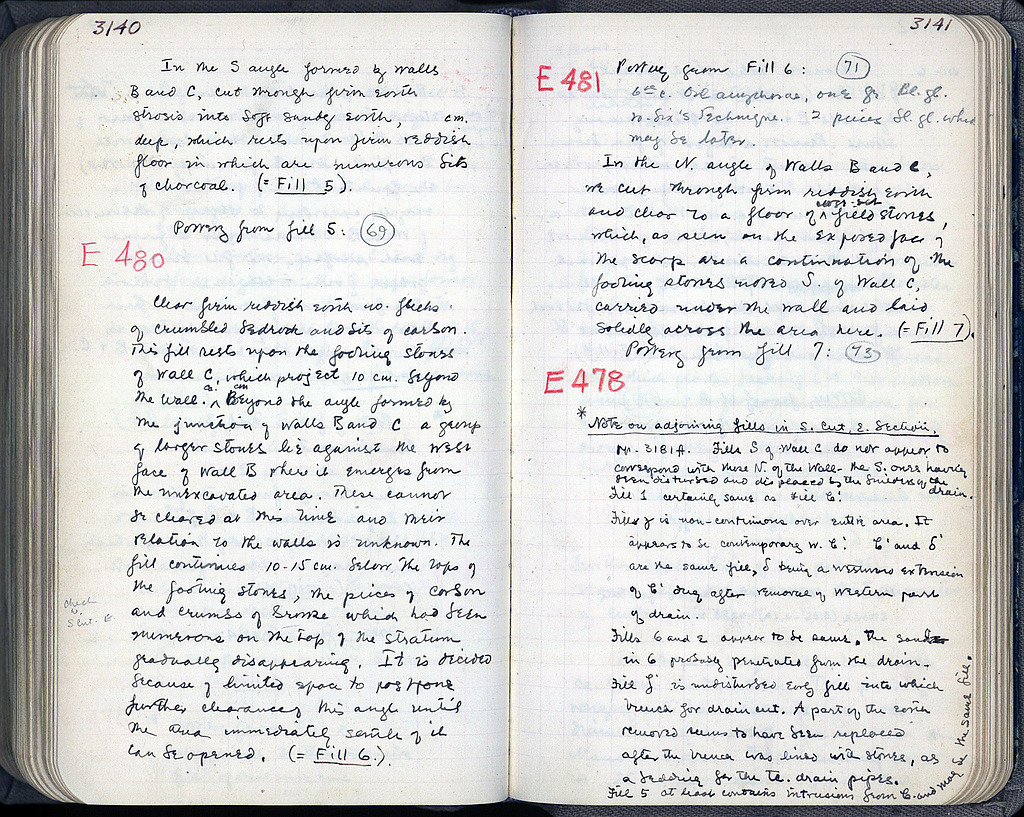 3140
In the S angle formed by Walls
B and C, cut through firm earth
strosis into soft sandy earth, cm.
deep, which rests upon firm reddish
floor in which are numerous bits
of charcoal. (= Fill 5).
Pottery from fill 5: 69
E 480
Clear firm reddish earth w. flecks
of crumbled bedrock and bits of carbon.
This fill rests upon the footing stones
of Wall C, which project 10 cm. beyond
the wall. Beyond the angle formed by
the junction of Walls B and C a group
of larger stones lie against the West
face of Wall B where it emerges from
the unexcavated area. These cannot
be cleared at this time and their
relation to the walls is unknown. The
fill continues 10-15 cm. below the tops of
the footing stones, the pieces of carbon
and crumbs of bronze which had been
numerous on the top of the stratum
gradually disappearing. It is decided
because of limited space to postpone
further clearance of this angle until
the area immediately south of it
can be opened. (= Fill 6.).
check
S Cut. E.
3141
E 481
Pottery from Fill 6: 71
6th c. Oil amphorae, one fr. Bl. gl.
w. Six's technique. 2 pieces bl. gl. which
may be later.
In the N. angle of Walls B and C,
we cut through firm reddish earth
and clear to a floor of well-set field stones,
which, as seen on the exposed face of
the scarp are a continuation of the
footing stones noted S. of Wall C,
carried under the wall and laid
solidly across the area here. (= Fill 7).
Pottery from fill 7: 73
E 478
* Note on adjoining fills in S. Cut, E. Section.
M-3181A. Fills S of Wall C do not appear to
correspond with those N. of the Wall - the S. ones having
been disturbed and displaced by the builders of the drain.
Fill 1 certainly same as fill
Fills is non-continuous over entire area. It
appears to be contemporary w. and δ'
are the same fill, δ being a Western extension
of dug after removal of Western part
of drain.
Fills 6 and ε appear to be same. The sand
in 6 probably penetrated from the drain.
Fill is undisturbed early fill into which
trench for drain cut. A part of the earth
removed seems to have been replaced
after the trench was lined with stones, as
a bedding for the tc. drain pipes.
Fill 5 at least contains intrusions from 6. and may be the same fill.